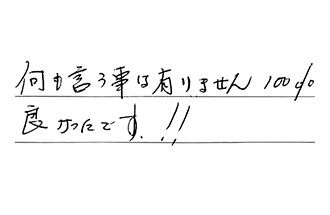 何も言う事は有りません 100%
良かったです。!!